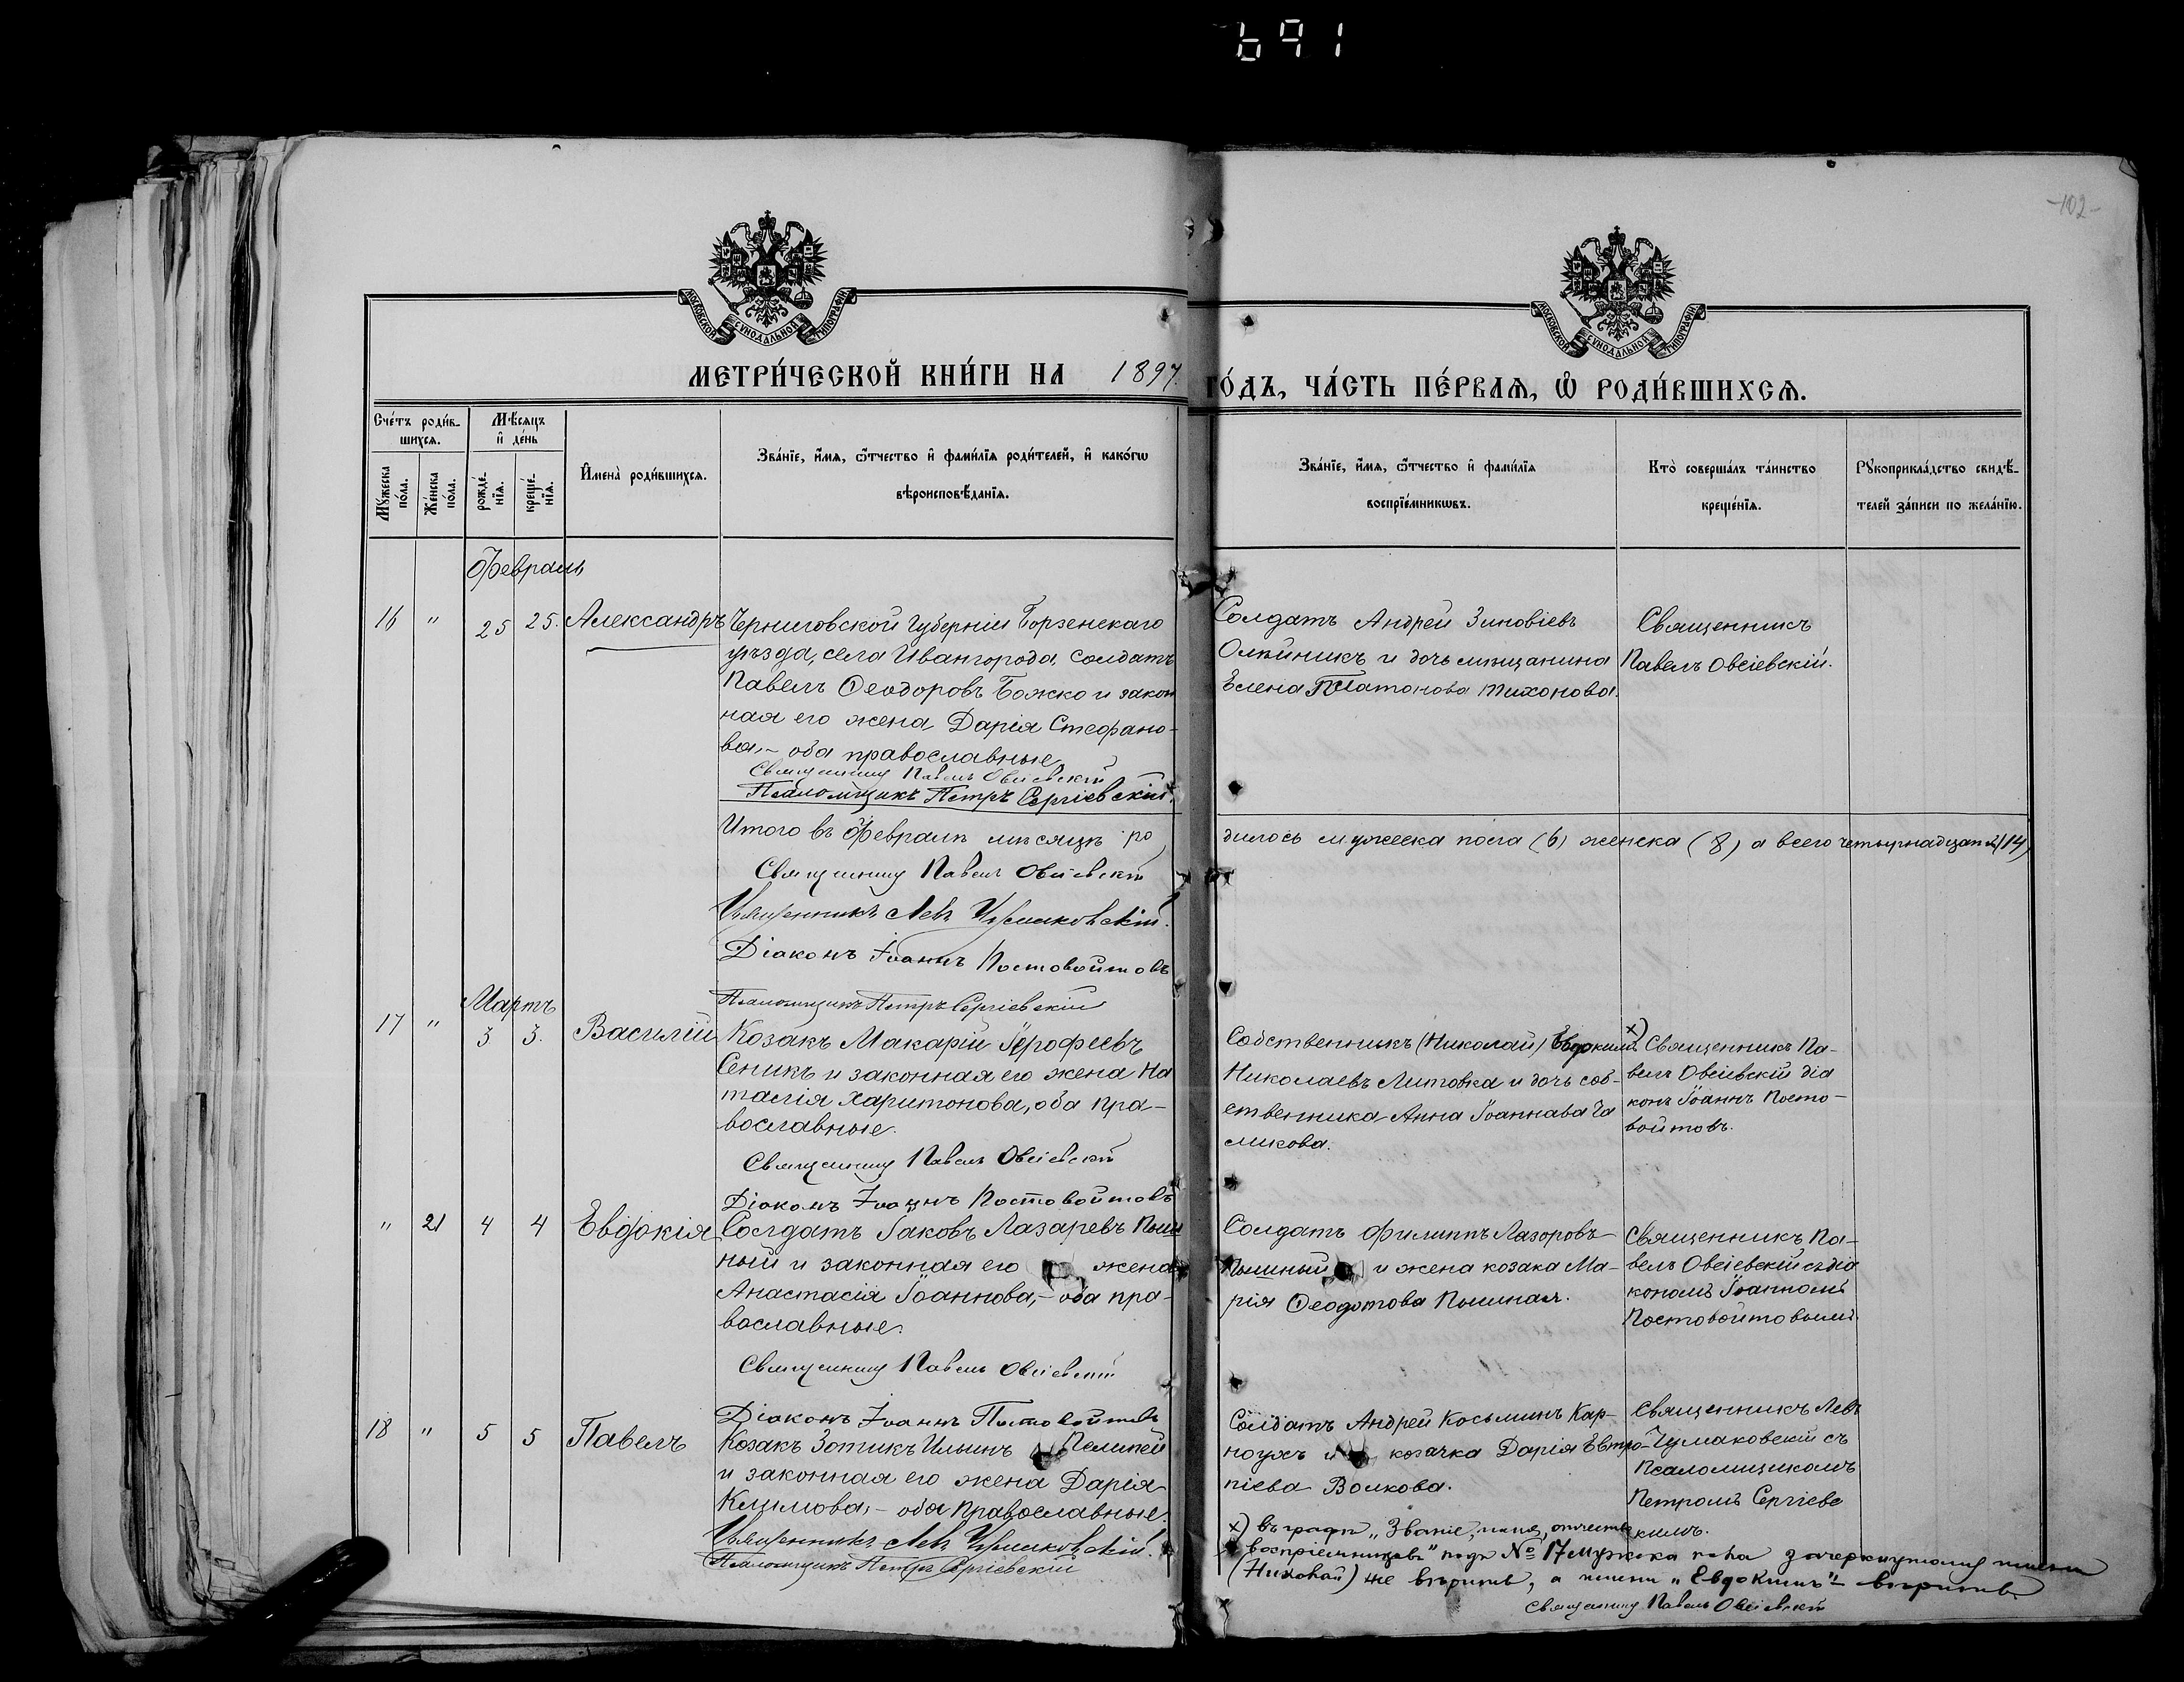 691
-102-
МОСКОВСКОЙ СѴНОДАЛЬНОЙ ТИПОГРАФІИ
МОСКОВСКОЙ СѴНОДАЛЬНОЙ ТИПОГРАФІИ
МЕТРИ́ЧЕСКОЙ КНИ́ГИ НА 1897
ГО́ДЪ, ЧА́СТЬ ПЕ́РВАѦ, Ѽ РОДИ́ВШИХСѦ.
Сче́тъ роди́в-
шихсѧ.
Мѣ́сѧцъ
и҆ де́нь
Мꙋ́жеска
по́ла.
Же́нска
по́ла.
рожде́-
нїѧ.
креще́-
нїѧ.
И҆мена̀ роди́вшихсѧ.
Зва́нїе, и҆́мѧ, ѻ҆́тчество и҆ фами́лїѧ роди́телей, и҆ како́гѡ
вѣроисповѣ́данїѧ.
Зва́нїе, и҆́мѧ, ѻ҆́тчество и҆ фами́лїѧ
воспрїе́мникѡвъ.
Кто̀ соверша́лъ та́инство
креще́нїѧ.
Рꙋкоприкла́дство свидѣ́-
телей за́писи по жела́нїю.
Февраль
16 " 25 25. Александръ
Черниговской губерніи Борзенскаго
уѣзда, села Ивангорода, солдатъ
Павелъ Ѳеодоровъ Божко и закон
ная его жена Дарія Стефано-
ва, - оба православные
Священникъ Павелъ Овсіевскій
Псаломщикъ Петръ Сергіевскій.
Солдатъ Андрей Зиновіевъ
Олѣйникъ и дочь мѣщанина
Елена Платонова Тихонова.
Священникъ
Павелъ Овсіевскій.
Итого въ Февралѣ мѣсяцѣ ро
дилось мужеска пола (6) женска (8) а всего четырнадцать (14)
Священникъ Павелъ Овсіевскій
Священникъ Левъ Чумаковскій.
Діаконъ Іоаннъ Постовойтовъ
Псаломщикъ Петръ Сергіевскій
Мартъ
17 " 3 3. Василій
Козакъ Макарій Іерофеевъ
Сеникъ и законная его жена На
талія Харитонова, оба пра-
вославные.
Священникъ Павелъ Овсіевскій
Діаконъ Іоаннъ Постовойтовъ
Собственникъ (Николай) Евдокимъ х)
Николаевъ Литовка и дочь соб-
ственника Анна Іоаннава Ча
ликова.
Священникъ Па-
велъ Овсіевскій діа
конъ Іоаннъ Посто-
войтовъ.
" 21 4 4 Евдокія
Солдатъ Іаковъ Лазаревъ
ный и законная его жена
Анастасія Іоаннова, - оба пра-
вославные.
Священникъ Павелъ Овсіевскій
Діаконъ Іоаннъ Постовойтовъ
Солдатъ Филиппъ Лазоровъ
и жена козака Ма-
рія Ѳеодотова
Священникъ Па-
велъ Овсіевскій съ діа
кономъ Іоанномъ
Постовойтовымъ.
18 " 5 5 Павелъ
Козакъ Зотикъ Ильинъ Пелипей
и законная его жена Дарія
Климова, - оба православные.
Священникъ Левъ Чумаковскій.
Псаломщикъ Петръ Сергіевскій
Солдатъ Андрей Косьминъ Кар-
ноухъ и козачка Дарія Евтро-
піева Волкова.
Священникъ Левъ
Чумаковскій съ
Псаломщикомъ
Петромъ Сергіевс
кимъ.
х) въ графѣ „Званіе, имя, отчество
воспріемниковъ" подъ № 17 мужска пола зачеркнутому имени
(Николай) не вѣрить, а имени „Евдокимъ" - вѣрить
Священникъ Павелъ Овсіевскій